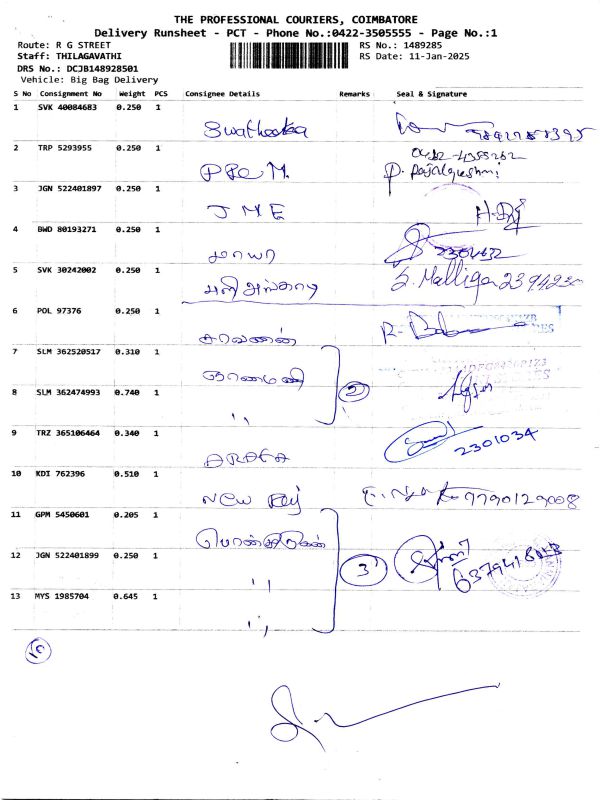 THE PROFESSIONAL COURIERS, COIMBATORE
Delivery Runsheet - PCT - Phone No.:0422-3505555 - Page No.:1
Route: R G STREET
RS No.: 1489285
Staff: THILAGAVATHI
RS Date: 11-Jan-2025
DRS No.: DCJB148928501
Vehicle: Big Bag Delivery
S No Consignment No Weight PCS Consignee Details Remarks Seal & Signature
1 SVK 40084683 0.250 1
2 TRP 5293955 0.250 1
P. Rajalakshmi
3 JGN 522401897 0.250 1
J M E
4 BWD 80193271 0.250 1
மாயா 2304632
5 SVK 30242002 0.250 1
மளி அங்காடி S. Malliga
6 POL 97376 0.250 1
சரவணன்
7 SLM 362520517 0.310 1
ஞானமணி
8 SLM 362474993 0.740 1
,, 2
9 TRZ 365106464 0.340 1
2301034
10 KDI 762396 0.510 1
New 9790129008
11 GPM 5450601 0.205 1
12 JGN 522401899 0.250 1
,, 3
13 MYS 1985704 0.645 1
,,